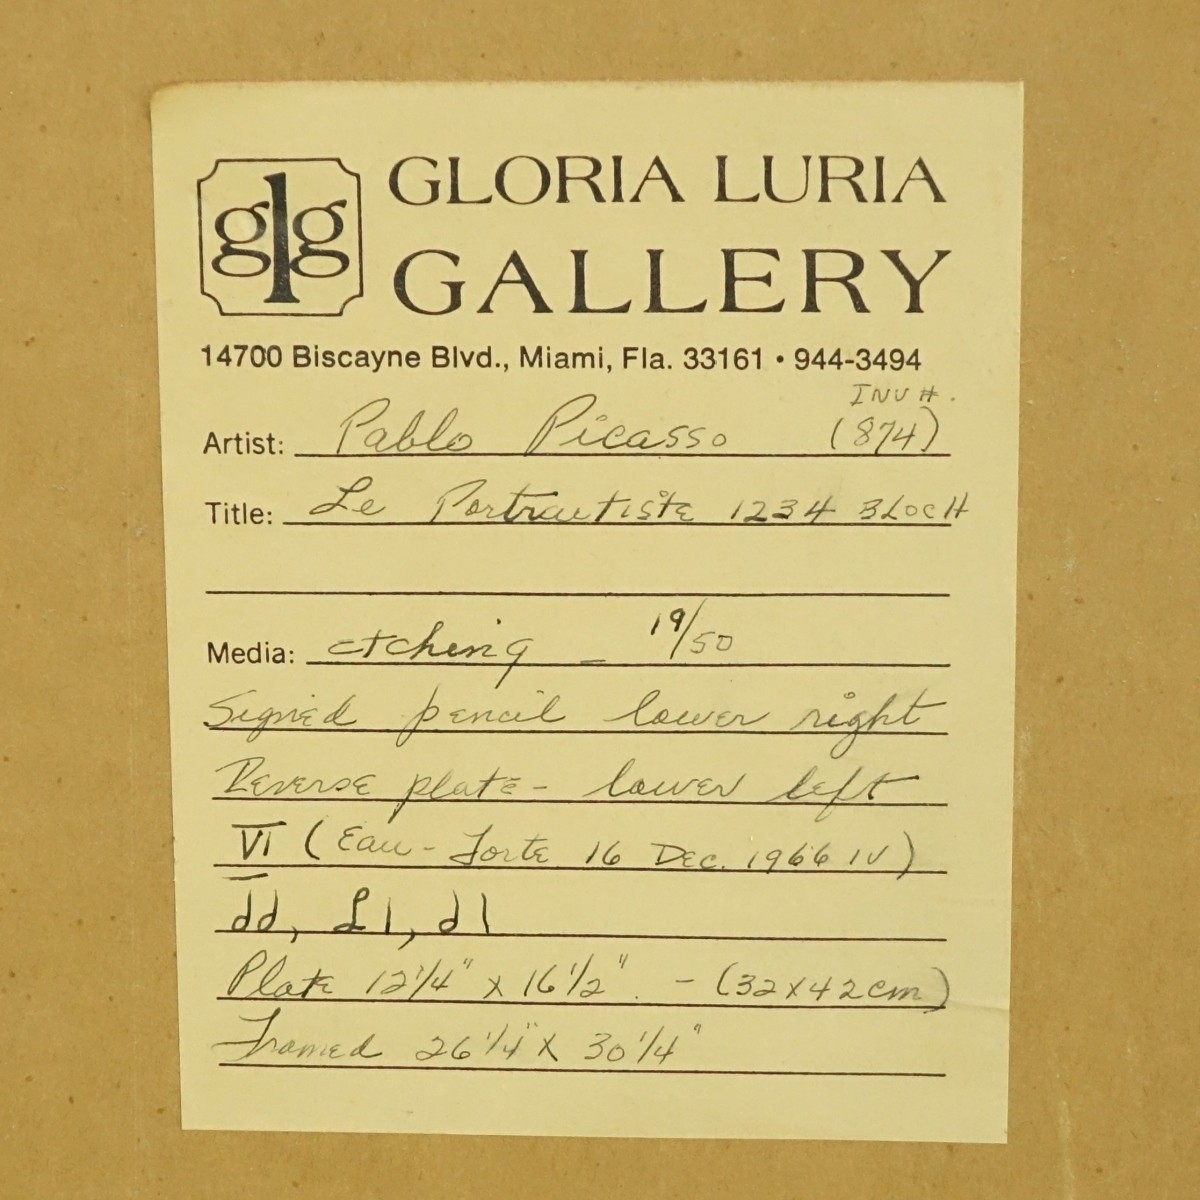 glg
GLORIA LURIA
GALLERY
14700 Biscayne Blvd., Miami, Fla. 33161 • 944-3494
INV #.
Artist: Pablo Picasso (874)
Title: Le Portraitiste 1234 BLOCH
Media: etching - 19/50
Signed pencil lower right
Reverse plate - lower left
VI (Eau-Forte 16 Dec. 1966 IV)
dd, £1, d1
Plate 12 1/4" x 16 1/2" - (32x42cm)
Framed 26 1/4" x 30 1/4"